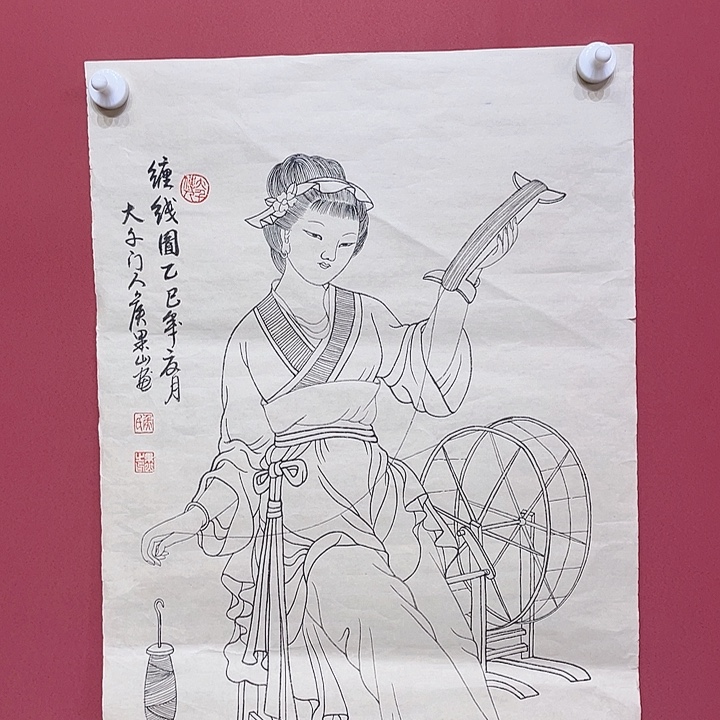 缠线圖乙巳年夜月
大千门人侯果山画